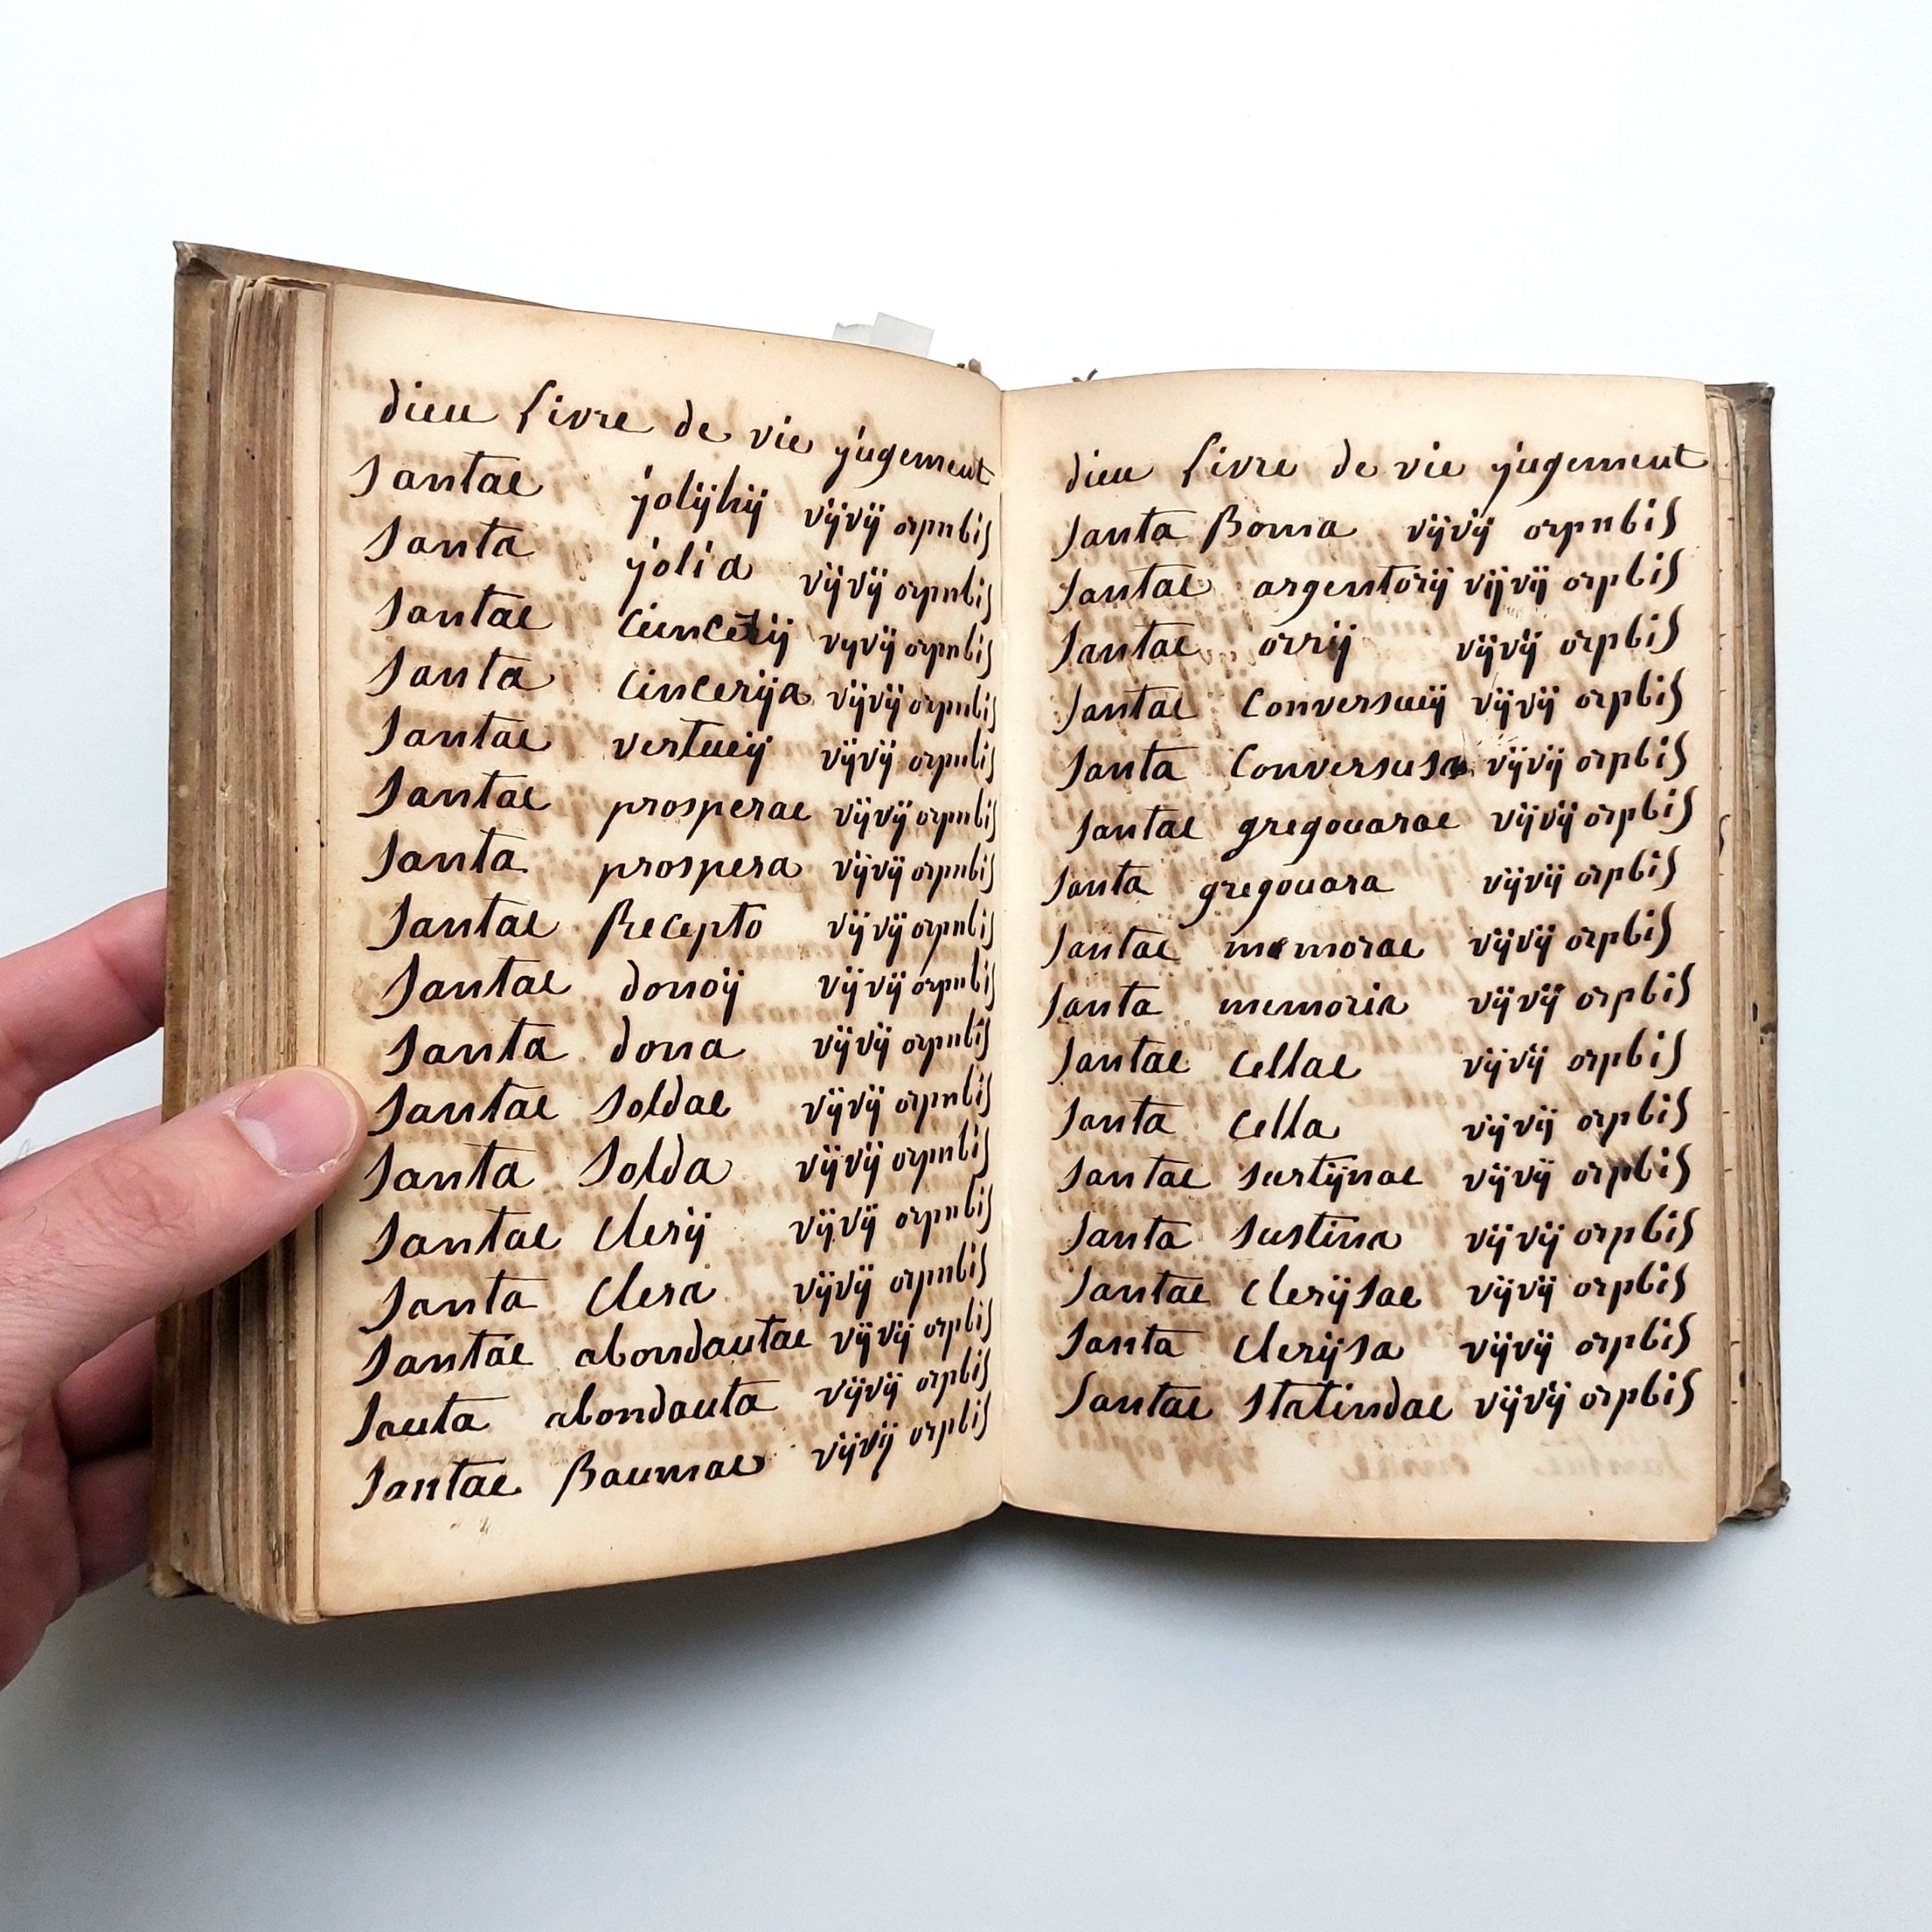 dieu livre de vie jugement
Santae jolijhij vijvij orpnbis
Santa jolia vijvij orpnbis
Santae vyvij orpnbis
Santa Cincerija vijvij orpnbis
Santae vertueij vijvij orpnbis
Santae prosperae vijvij orpnbis
Santa prospera vijvij orpnbis
Santae Recepto vijvij orpnbis
Santae donoij vijvij orpnbis
Santa dona vijvij orpnbis
Santae Soldae vijvij orpnbis
Santa Solda vijvij orpnbis
Santae Clerij vijvij orpnbis
Santa Clera vijvij orpnbis
Santae abondautae vijvij orpbis
Sauta abondauta vijvij orpbis
Santae Baumae vijvij orpbis
dieu livre de vie jugement
Santa Boma vijvij orpnbis
Santae argentorij vijvij orpbis
Santae orrij vijvij orpbis
Santae Conversueij vijvij orpbis
Santa Conversusa vijvij orpbis
Santae gregouarae vijvij orpbis
Santa gregouara vijvij orpbis
Santae memorae vijvij orpbis
Santa memoria vijvij orpbis
Santae Cellae vijvij orpbis
Santa Cella vijvij orpbis
Santae Sustijnae vijvij orpbis
Santa Sustina vijvij orpbis
Santae Clerijsae vijvij orpbis
Santa Clerijsa vijvij orpbis
Santae Statindae vijvij orpbis